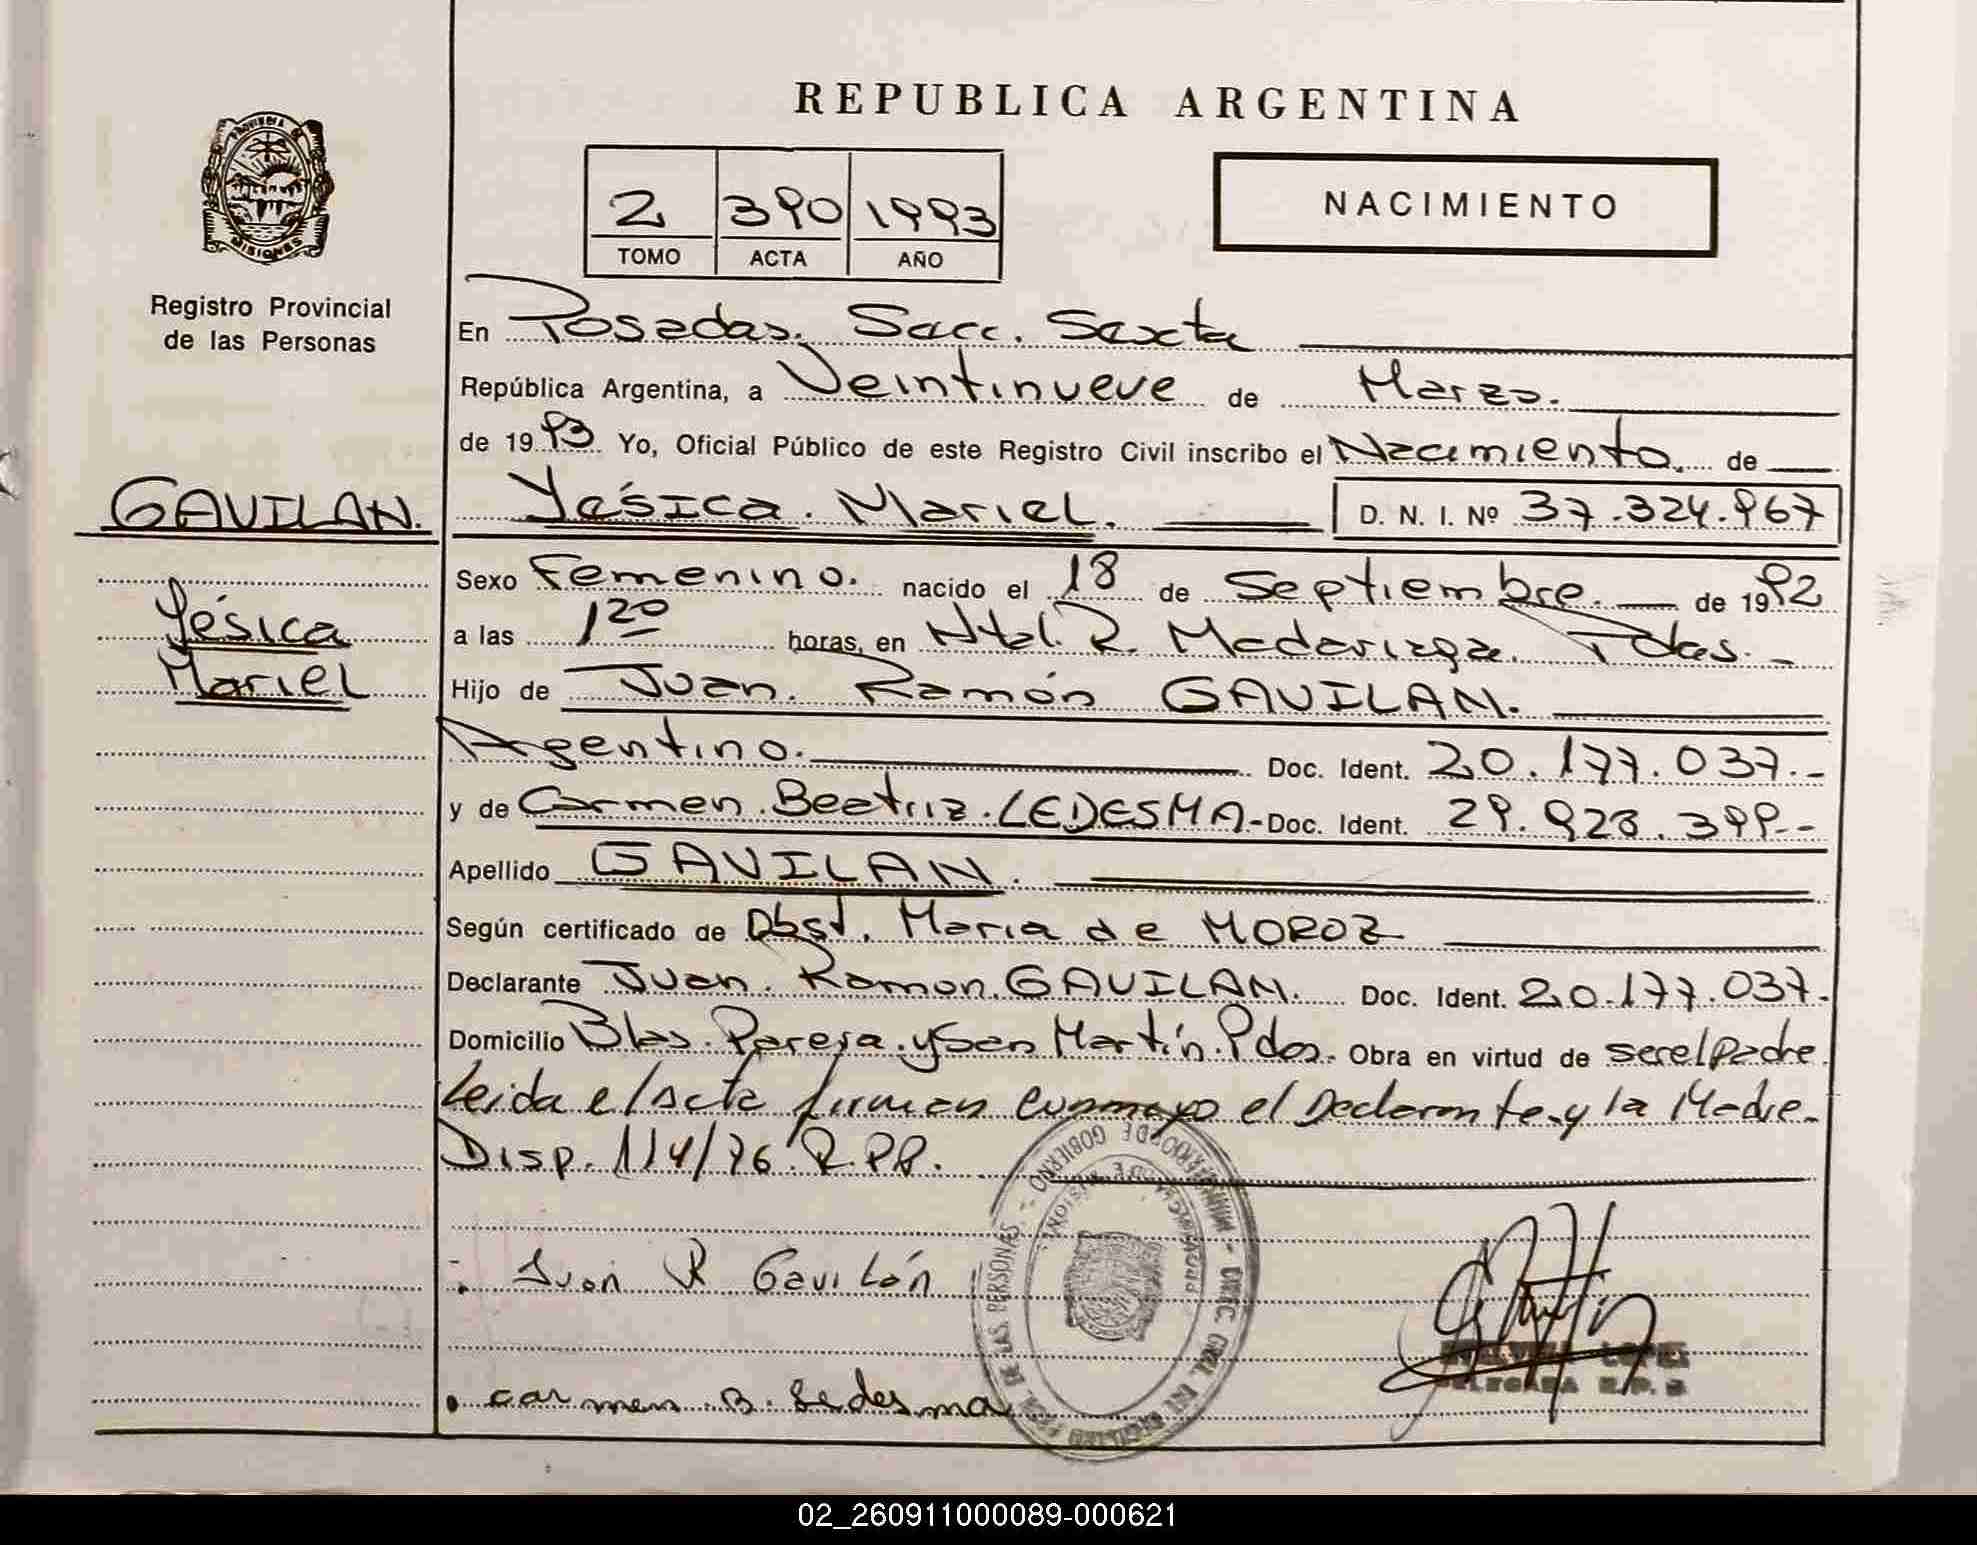 REPUBLICA ARGENTINA
PROVINCIA DE
MISIONES
Registro Provincial
de las Personas
2 390 1993
TOMO ACTA AÑO
NACIMIENTO
En Posadas. Secc. Sexta
República Argentina, a Veintinueve de Marzo.
de 1993 Yo, Oficial Público de este Registro Civil inscribo el Nacimiento. de
GAVILAN.
Yésica Mariel
Yésica. Mariel. D. N. I. Nº 37.324.967
Sexo Femenino. nacido el 18 de Septiembre. de 1992
a las 1 20 horas, en Htal. R. Madariaga. Pdas. -
Hijo de Juan. Ramón GAVILAN.
Argentino. Doc. Ident. 20.177.037.-
y de Carmen. Beatriz. LEDESMA- Doc. Ident. 29.923.399.--
Apellido GAVILAN.
Según certificado de Obst. Maria de MOROZ
Declarante Juan. Ramon. GAVILAN. Doc. Ident. 20.177.037.
Domicilio Blas. Parera. y San Martín. Pdas. Obra en virtud de ser el Padre.
Leida el Acta firman conmigo el Declarante y la Madre.
Disp. 114/76 R.PP.
Juan R Gavilán
Carmen. B. Ledesma
LOPEZ
DELEGADA R.P.
MINISTERIO DE GOBIERNO - DE LAS PERSONAS -
02_260911000089-000621